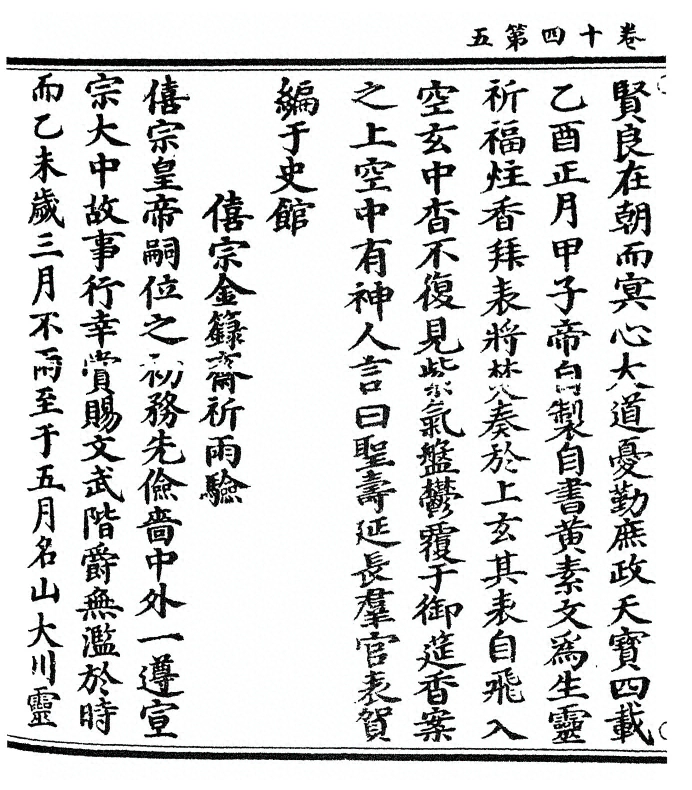 卷十四第五
賢良在朝而㝠心大道憂勤庶政天寶四載
乙酉正月甲子帝自製自書黄素文爲生靈
祈福炷香拜表將焚奏於上玄其表自飛入
空玄中杳不復見紫氣盤鬱覆于御筵香案
之上空中有神人言曰聖壽延長羣官表賀
編于史館
僖宗金籙齋祈雨驗
僖宗皇帝嗣位之初務先儉嗇中外一遵宣
宗大中故事行幸賞賜文武階爵無濫於時
而乙未歲三月不雨至于五月名山大川靈